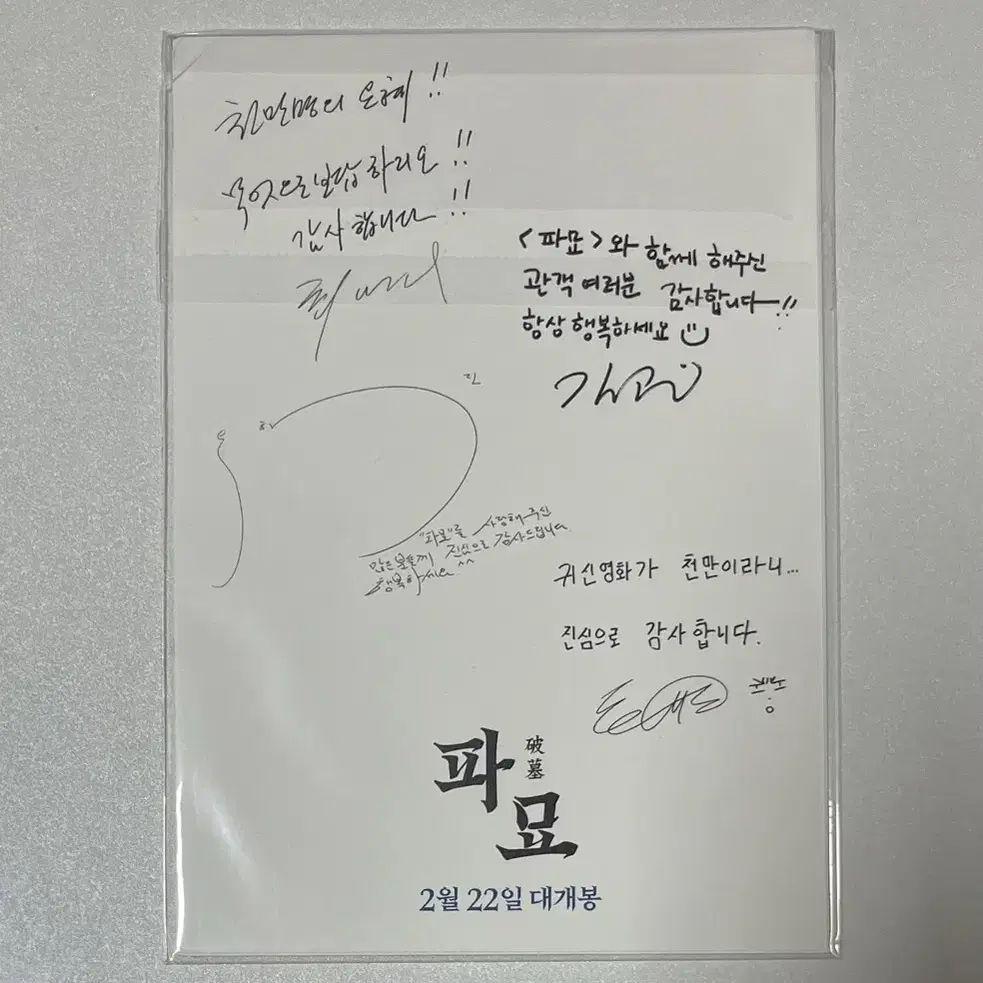 천만명의 은혜!!
목숨으로 보답하리오!!
감사합니다!!
최민식
<파묘>와 함께 해주신
관객 여러분 감사합니다!!
항상 행복하세요
김고은
유 해 진
"파묘"를 사랑해 주신
많은 분들께 진심으로 감사드립니다
행복하세요 ^^
귀신영화가 천만이라니...
진심으로 감사합니다.
파묘
破墓
2월 22일 대개봉